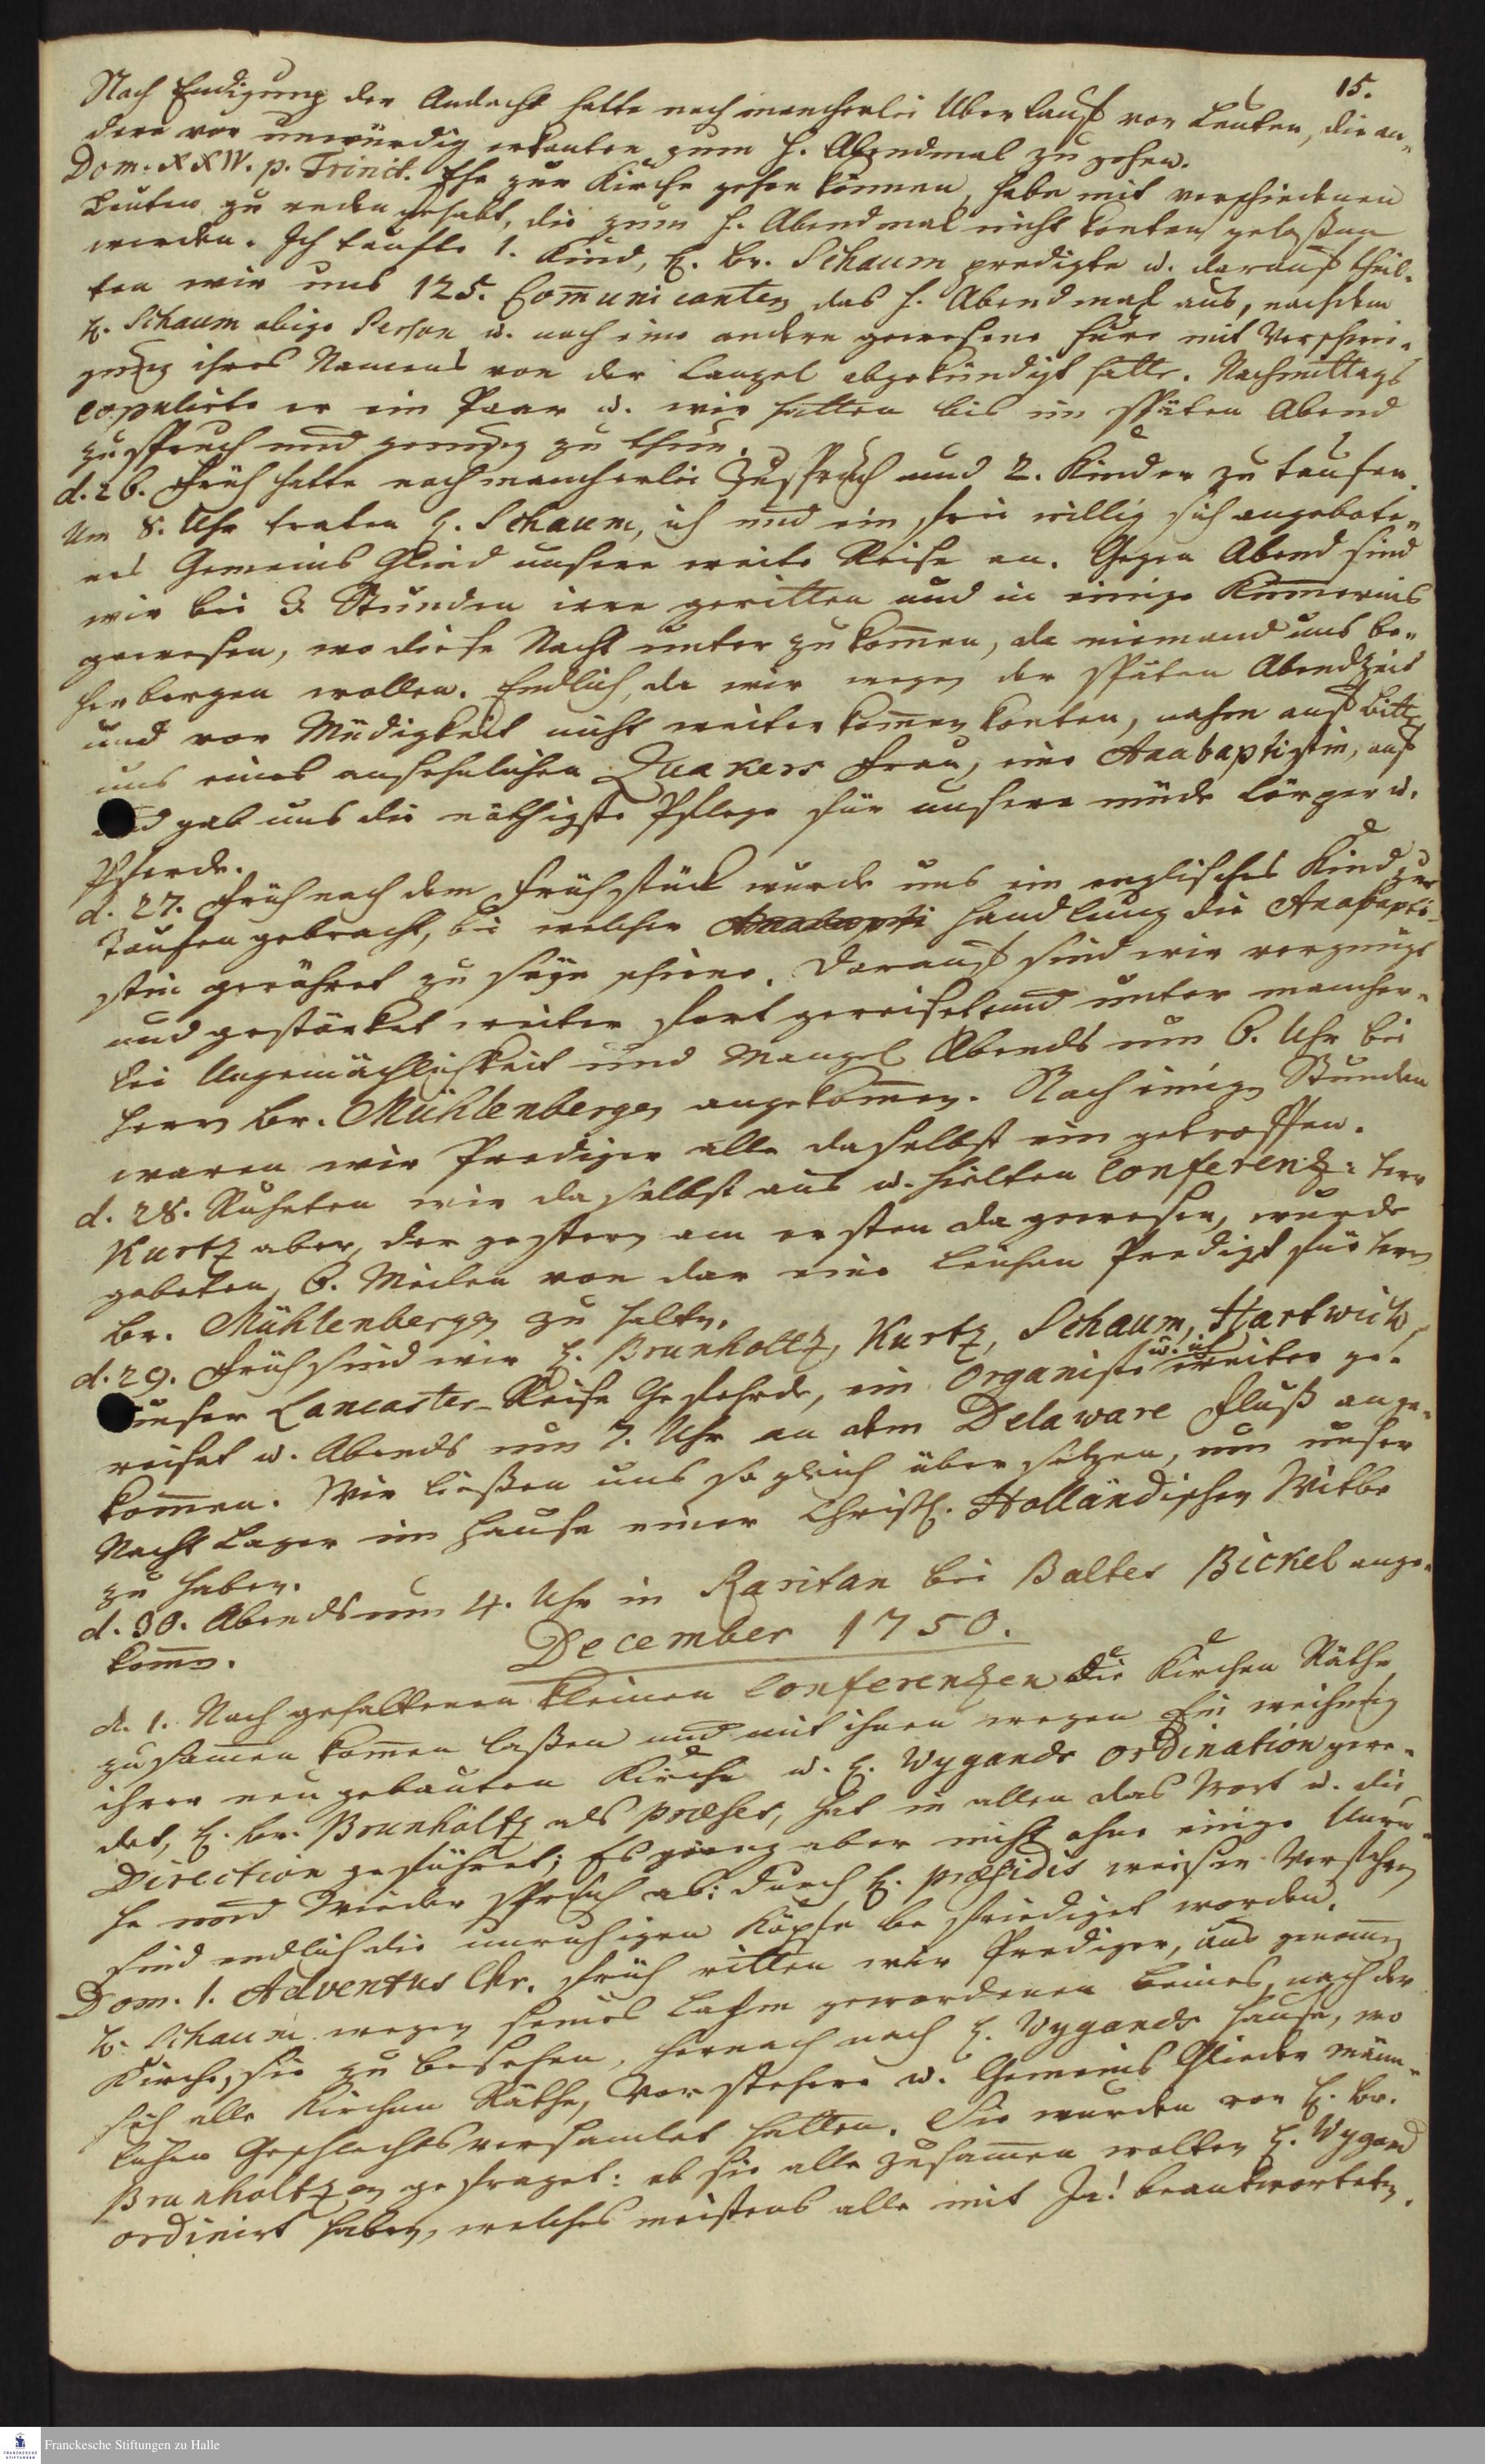 15.
Nach Endigung der Andacht hatte noch mancherlei Uberlauf von Leuten, die an-
dere vor unwürdig erkanten zum H. Abendmal zu gehen.
Dom. XXIV. p. Trinit. Ehe zur Kirche gehen können, habe mit verschiedenen
Leuten zu reden gehabt, die zum H. Abendmal nicht konten gelaßen
werden. Ich taufte 1. Kind, H. Br. Schaum predigte u. darauf theil-
ten wir uns 125. Com̄unicanten das H. Abendmal aus, nachdem
H. Schaum obige Person u. noch eine andere gewesene Hure mit Verschwei-
gung ihres Namens von der Canzel abgekündigt hatte. Nachmittags
copulirte er ein Paar u. wir hatten bis im späten Abend
zuspruch und genug zu thun.
d. 26. Früh hatte noch mancherlei Zuspruch und 2. Kinder zu taufen.
Um 8. Uhr traten H. Schaum, ich und ein frei willig sich angebote-
nes Gemeins Glied unsere weite Reise an. Gegen Abend sind
wir bei 3. Stunden irre geritten und in einige Kum̄ernis
gewesen, wo diese Nacht unter zu kom̄en, da niemand uns be-
herbergen wollen. Endlich, da wir wegen der späten Abendzeit
und vor Müdigkeit nicht weiter kom̄en konten, nahm auf Bitte
uns eines ansehnlichen Quakers Frau, eine Anabaptistin, auf
und gab uns die nöthigste Pflege für unsere müde Cörper u.
Pferde.
d. 27. Früh nach dem Frühstück wurde uns ein englisches Kind zur
Taufen gebracht, bei welcher Anabapti Handlung die Anabapti-
stin gerühret zu seyn schiene. Darauf sind wir vergnügt
und gestärket weiter fort gereiset und unter mancher-
lei Ungemächlichkeit und Mangel Abends um 6. Uhr bei
Herrn Br. Mühlenbergen angekom̄en. Nach einigen Stunden
waren wir Prediger alle daselbst ein getroffen.
d. 28. Ruheten wir daselbst aus u. hielten Conferenz: Herr
Kurtz aber, der gestern am ersten da gewesen, wurde
gebeten, 6. Meilen von dar eine Leichen Predigt für Herrn
Br. Mühlenbergen zu halten.
d. 29. Früh sind wir H. Brunholtz, Kurtz, Schaum, Hartwich,
unser Lancaster-Reise Gefehrde, ein Organiste u. ich weiter ge-
reiset u. Abends um 7. Uhr an dem Delaware Fluß ange-
kom̄en. Wir ließen uns sogleich über setzen, um unser
Nacht Lager im Hause einer Christl. Holländischen Witbe
zu haben.
d. 30. Abends um 4. Uhr in Raritan bei Baltes Bickel ange-
kom̄en.
December 1750.
d. 1. Nach gehaltenen kleinen Conferenzen die Kirchen Räthe
zusam̄en kom̄en laßen und mit ihnen wegen Ein weihung
ihrer neu gebauten Kirche u. H. Wygands ordination gere-
det, H. Br. Brunholtz als præses, hat in allen das Wort u. die
Direction geführet; Es gieng aber nicht ohne einige Unru-
he und Wieder spruch ab: durch H. præsidis weisen Verfahren
sind endlich die unruhigen Köpfe be friediget worden.
Dom. 1. Adventus Chr. früh ritten wir Prediger, aus genom̄en
H. Schaum wegen seines Lahm gewordenen Beines, nach der
Kirche, sie zu besehen, hernach nach H. Wygands Hause, wo
sich alle Kirchen Räthe, Vorstehere u. Gemeins Glieder männ-
lichen Geschlechts versamlet hatten. Sie wurden von H. Br.
Brunholtzen gefraget: ob sie alle zusam̄en wolten H. Wygand
ordinirt haben, welches meistens alle mit Ja! beantworteten.
Franckesche Stiftungen zu Halle